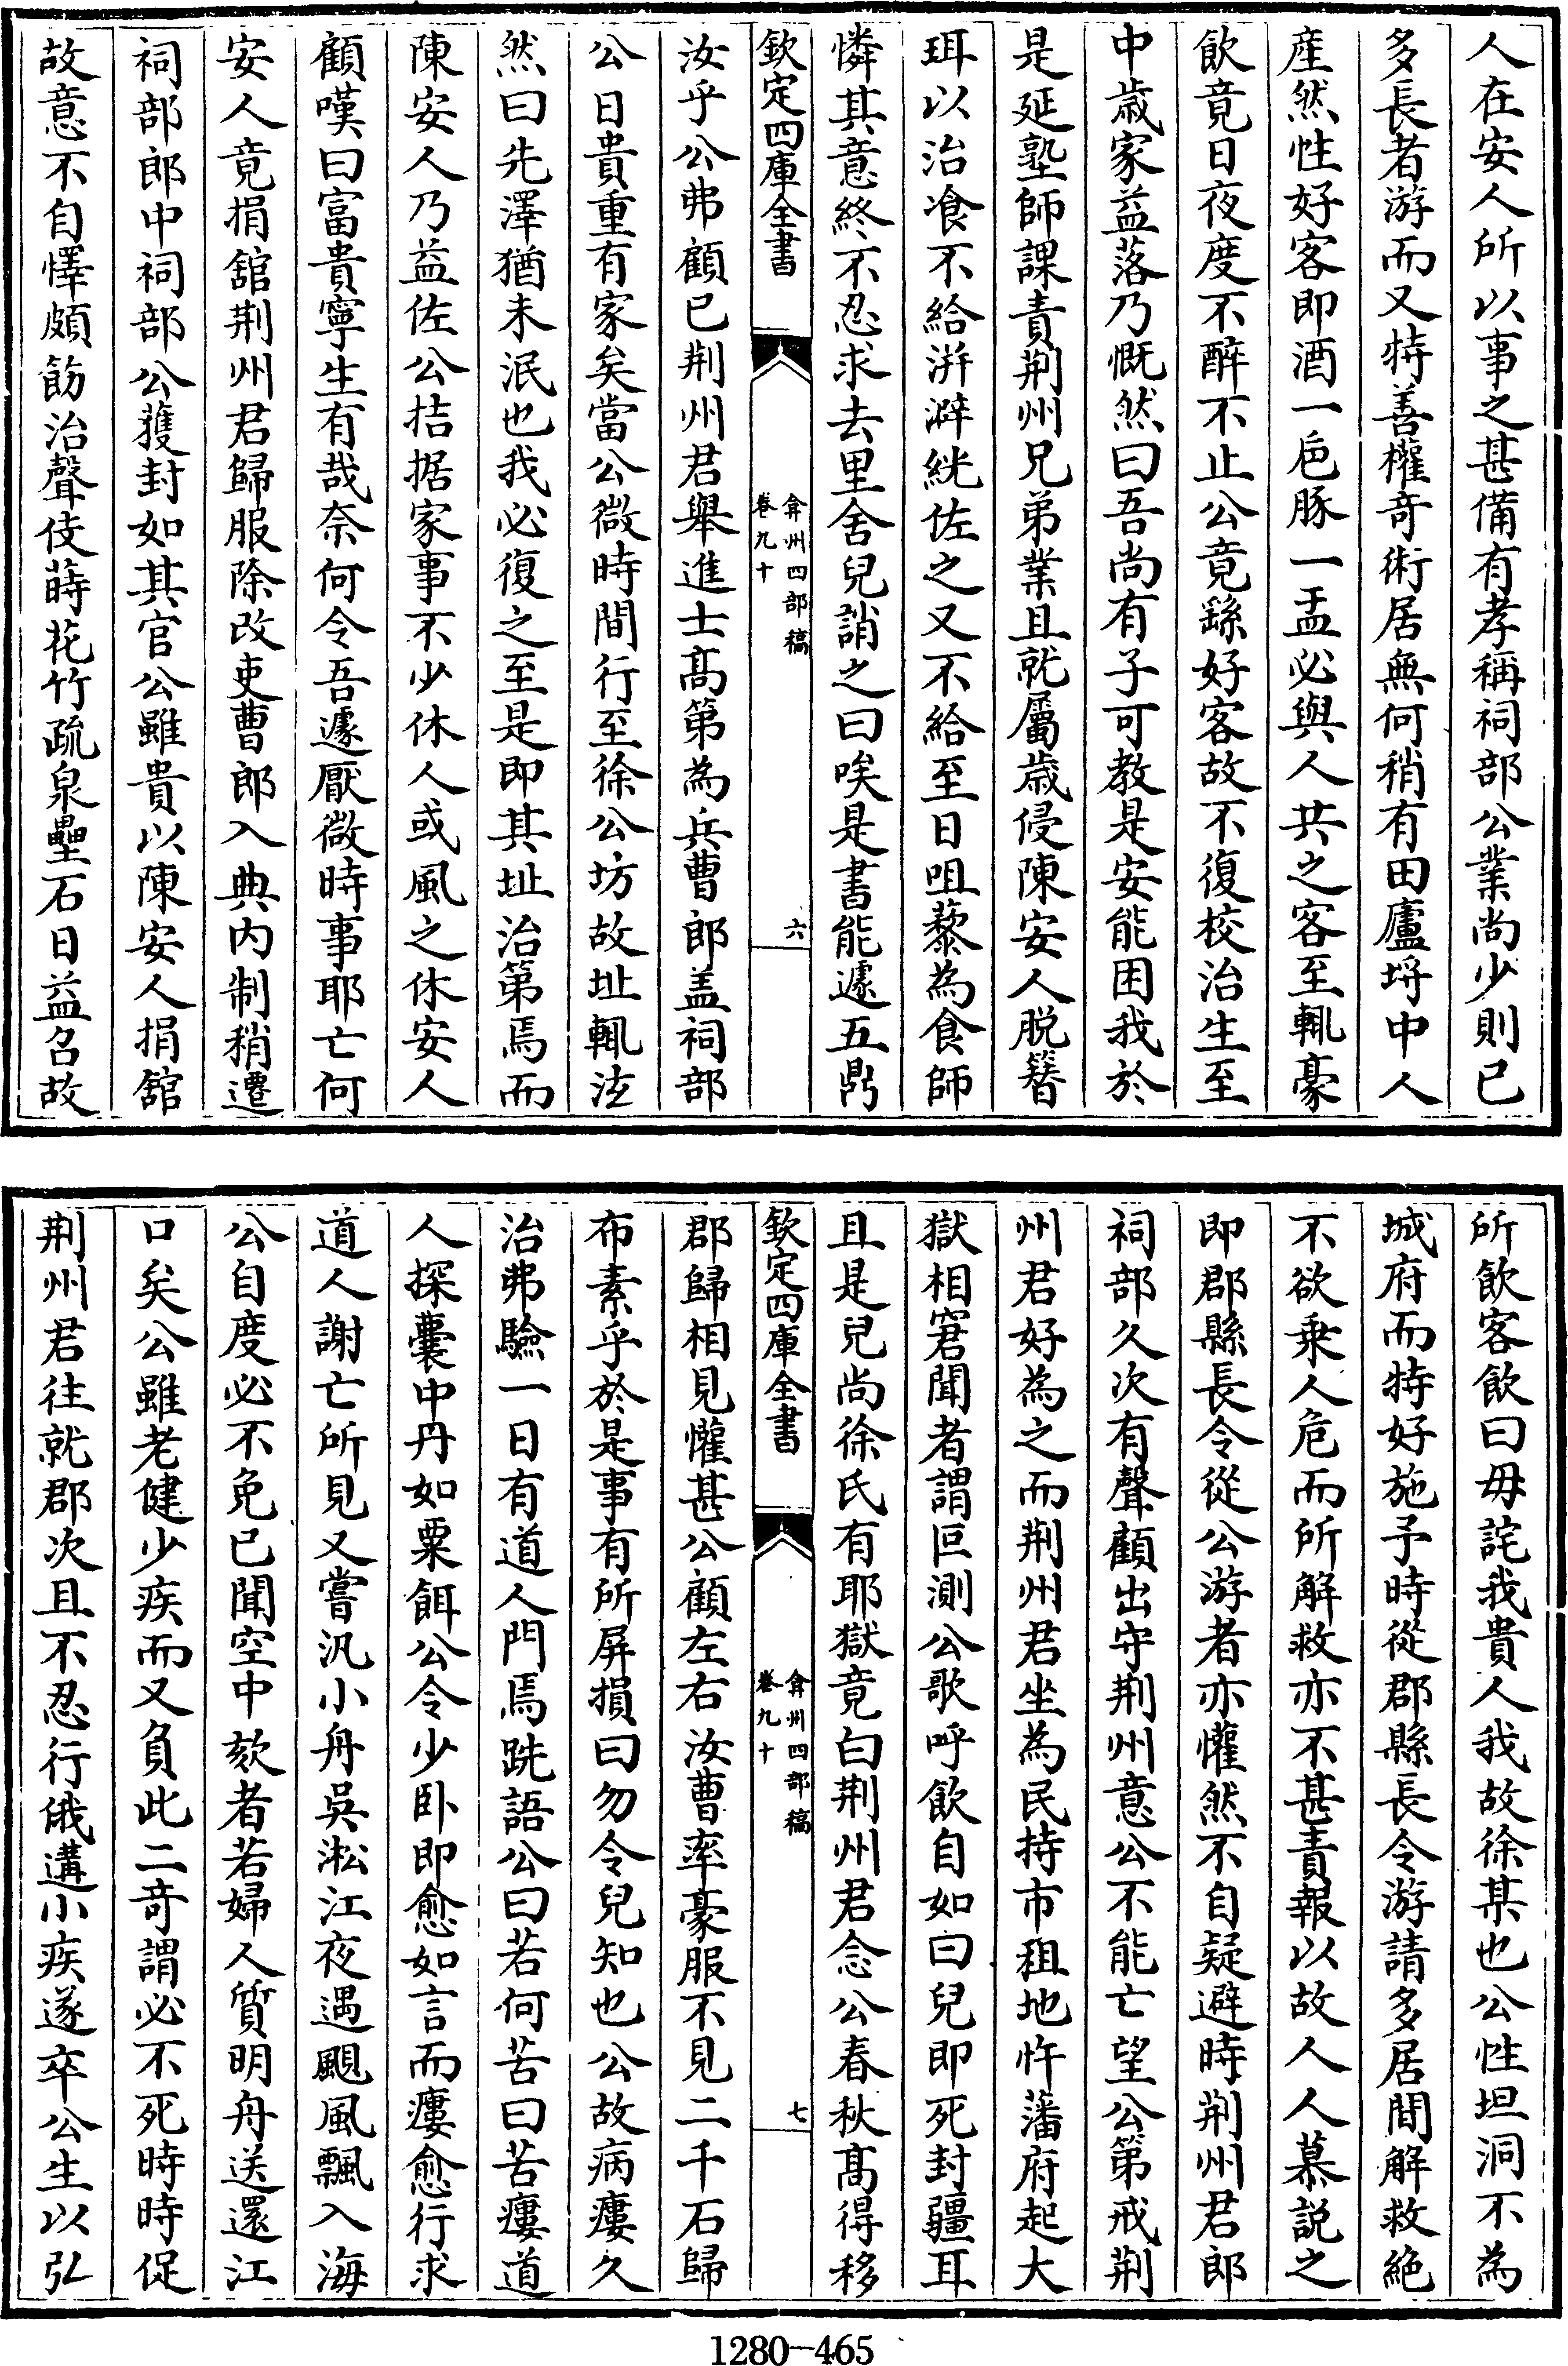 人在安人所以事之甚備有孝稱祠部公業尚少則已
多長者游而又特善權竒術居無何稍有田廬埒中人
産然性好客即酒一巵豚一盂必與人共之客至輒豪
飲竟日夜度不醉不止公竟繇好客故不復校治生至
中歳家益落乃慨然曰吾尚有子可教是安能困我於
是延塾師課責荆州兄弟業且就屬歳侵陳安人脱簪
珥以治飡不給洴澼絖佐之又不給至日咀藜為食師
憐其意終不忍求去里舍兒誚之曰唉是書能遽五鼎
欽定四庫全書
弇州四部稿
卷九十
六
汝乎公弗顧已荆州君舉進士髙第為兵曹郎盖祠部
公日貴重有家矣當公微時間行至徐公坊故址輒泫
然曰先澤猶未泯也我必復之至是即其址治第焉而
陳安人乃益佐公拮据家事不少休人或風之休安人
顧嘆曰富貴寧生有哉奈何令吾遽厭微時事耶亡何
安人竟捐舘荆州君歸服除改吏曹郎入典内制稍遷
祠部郎中祠部公獲封如其官公雖貴以陳安人捐舘
故意不自懌頗飭治聲伎蒔花竹疏泉壘石日益召故
所飲客飲曰毋詫我貴人我故徐某也公性坦洞不為
城府而特好施予時從郡縣長令游請多居間解救絶
不欲乗人危而所解救亦不甚責報以故人人慕説之
即郡縣長令從公游者亦懽然不自疑避時荆州君郎
祠部久次有聲顧出守荆州意公不能亡望公第戒荆
州君好為之而荆州君坐為民持市租地忤藩府起大
獄相窘聞者謂叵測公歌呼飲自如曰兒即死封疆耳
且是兒尚徐氏有耶獄竟白荆州君念公春秋髙得移
欽定四庫全書
弇州四部稿
卷九十
七
郡歸相見懽甚公顧左右汝曹率豪服不見二千石歸
布素乎於是事有所屏損曰勿令兒知也公故病瘻久
治弗驗一日有道人門焉跣語公曰若何苦曰苦瘻道
人探囊中丹如粟餌公令少卧即愈如言而瘻愈行求
道人謝亡所見又嘗汎小舟吳淞江夜遇颶風飄入海
公自度必不免已聞空中欬者若婦人質明舟送還江
口矣公雖老健少疾而又負此二竒謂必不死時時促
荆州君往就郡次且不忍行俄遘小疾遂卒公生以弘
1280-465